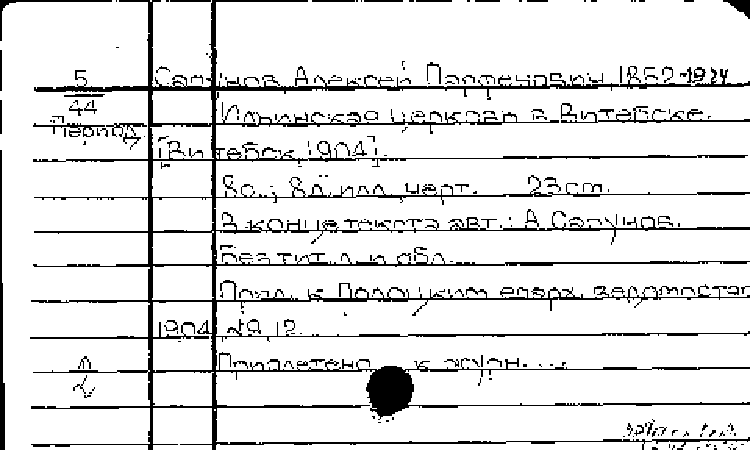 5 Сапунов, Алексей Парфенович, 1852-1924
44 Ильинская церковь в Витебске.
Период [Витебск, 1904].
8 с.; 8 л. илл., черт. 23 cm.
В конце текста авт.: А. Сапунов.
Без тит. л. и обл.
Прил. к Полоцким епарх. ведомостям
1904, №9, 12.
Приплетено к журн.